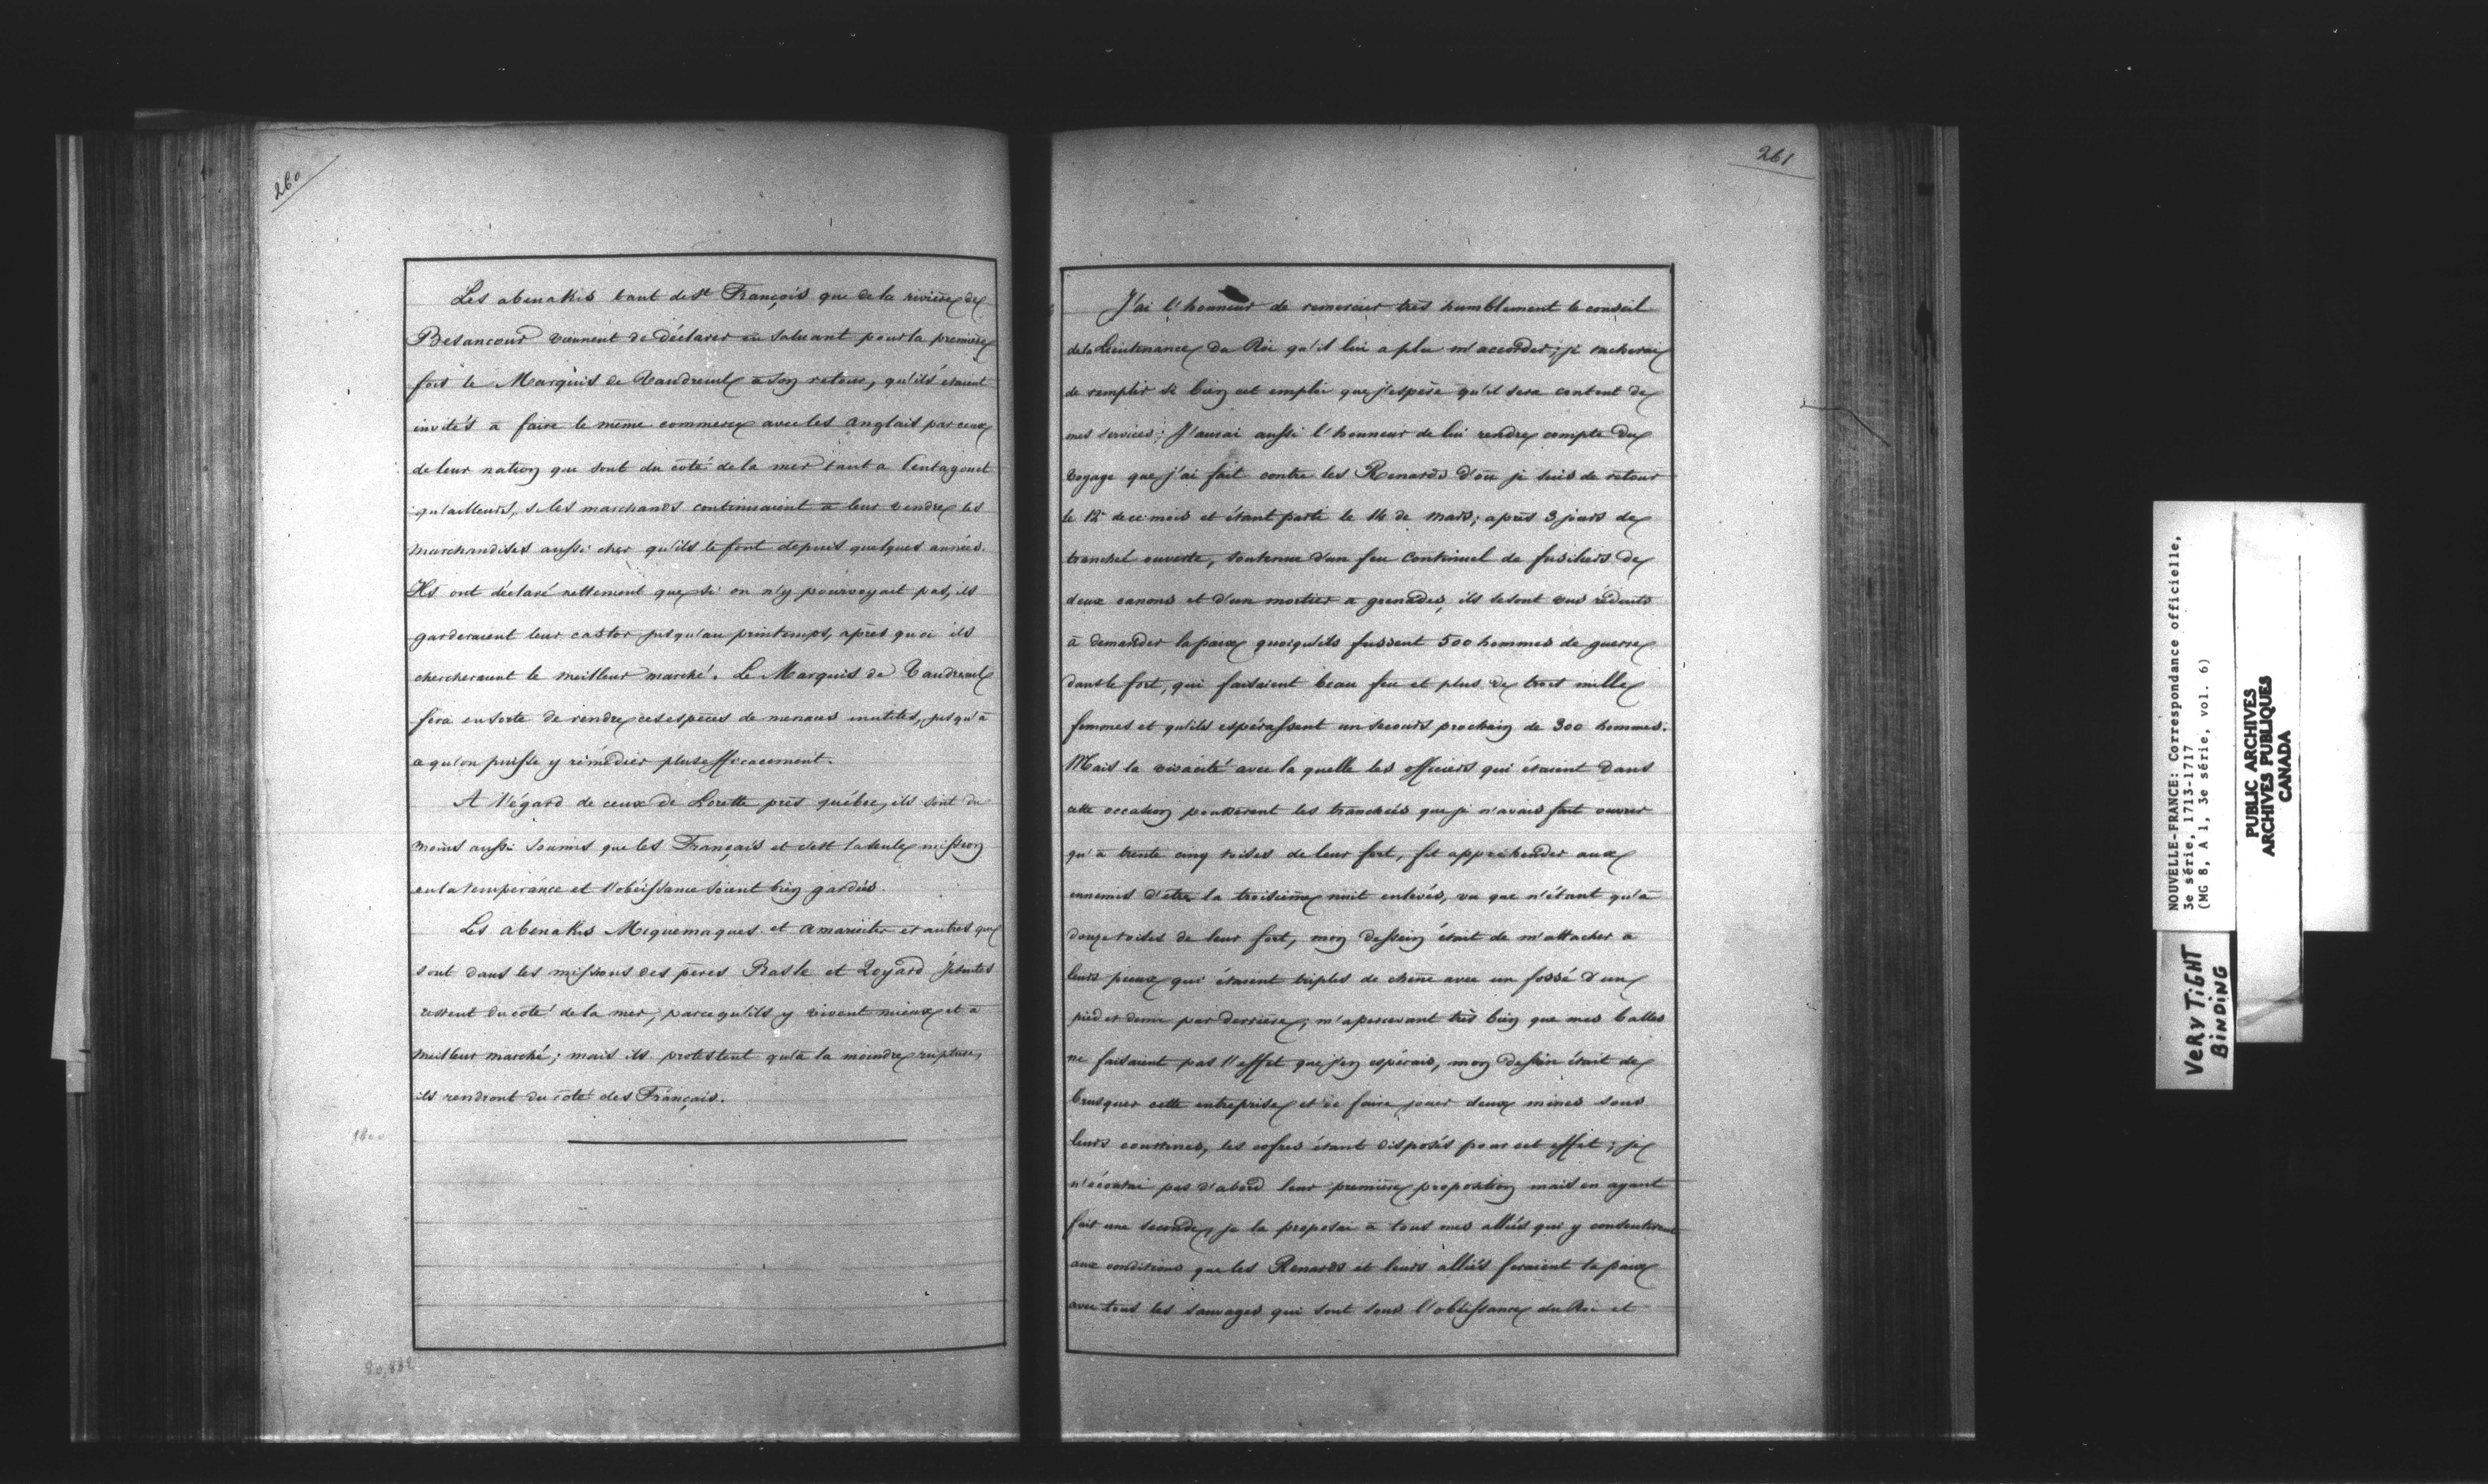 260
Les abenakis tant de St François que de la rivière de
Besancour viennent de déclarer en saluant pour la première
fois le Marquis de Vaudreuil à son retour, qu'ils étaient
invités à faire le même commerce avec les anglais par ceux
de leur nation que sont du côté de la mer tant a Pentagouet
qu'ailleurs, si les marchands continuaient à leur vendre les
marchandises aussi cher qu'ils le font depuis quelques années.
Ils ont déclaré nettement que si on n'y pourvoyait pas, ils
garderaient leur castor jusqu'au printemps, après quoi ils
chercheraient le meilleur marché. Le Marquis de Vaudreuil
fera en sorte de rendre ces espèces de menaces inutiles, jusqu'à
a qu'on puisse y rémédier plus efficacement.
A l'égard de ceux de Lorette près québec, ils sont du
moins aussi soumis que les Français et c'est la seule mission
ou la tempérance et l'obéissance soient bien gardées.
Les abenakis Miquemaques et amarisites et autres qui
sont dans les missions des pères Rasle et Loyard Jésuites
restent du côté de la mer, parce qu'ils y vivent mieux et à
meilleur marché; mais ils protestent qu'à la moindre rupture,
ils rendront du côté des Français.
261
J'ai l'honneur de remercier très humblement le conseil
de la Lieutenance du Roi qu'il lui a plu m'accorder; je tacherai
de remplir si bien cet emploi que j'espère qu'il sera content de
mes services; J'aurai aussi l'honneur de lui rendre compte du
voyage que j'ai fait contre les Renards d'où je suis de retour
le 12 de ce mois et étant parti le 14 de mars; après 3 jours de
tranchée ouverte, soutenue d'un feu continuel de fusiliers de
deux canons et d'un mortier a grenades, ils se sont vus réduits
à demander la paix quoiqu'ils fussent 500 hommes de guerre
dans le fort, qui faisaient beau feu et plus de trois mille
femmes et qu'ils espérassent un secours prochain de 300 hommes.
Mais la vivacité avec la quelle les officiers qui étaient dans
cette occasion poussèrent les tranchées que je n'avais fait ouvrir
qu'à trente cinq toises de leur fort, fit appréhender aux
ennemis d'etre la troisième nuit enlevés, vu que n'étant qu'à
douze toises de leur fort, mon dessein était de m'attacher a
leurs pieux qui étaient triples de chêne avec un fossé d'un
pied et demi par derrière; m'apercevant très bien que mes balles
ne faisaient pas l'effet que j'en espérais, mon dessein était de
brusquer cette entreprise et de faire jouer deux mines sous
leurs courtines, les cofres étant disposés pour cet effet; je
n'écoutai pas d'abord leur première proposition mais en ayant
fait une seconde, je la proposai à tous mes alliés qui y consentirent
aux conditions que les Renards et leurs alliés feraient la paix
avec tous les sauvages qui sont sous l'obéissance du Roi et
NOUVELLE-FRANCE: Correspondance officielle,
3e série, 1713-1717
(MG 8, A 1, 3e série, vol. 6)
PUBLIC ARCHIVES
ARCHIVES PUBLIQUES
CANADA
VERY TIGHT
BINDING